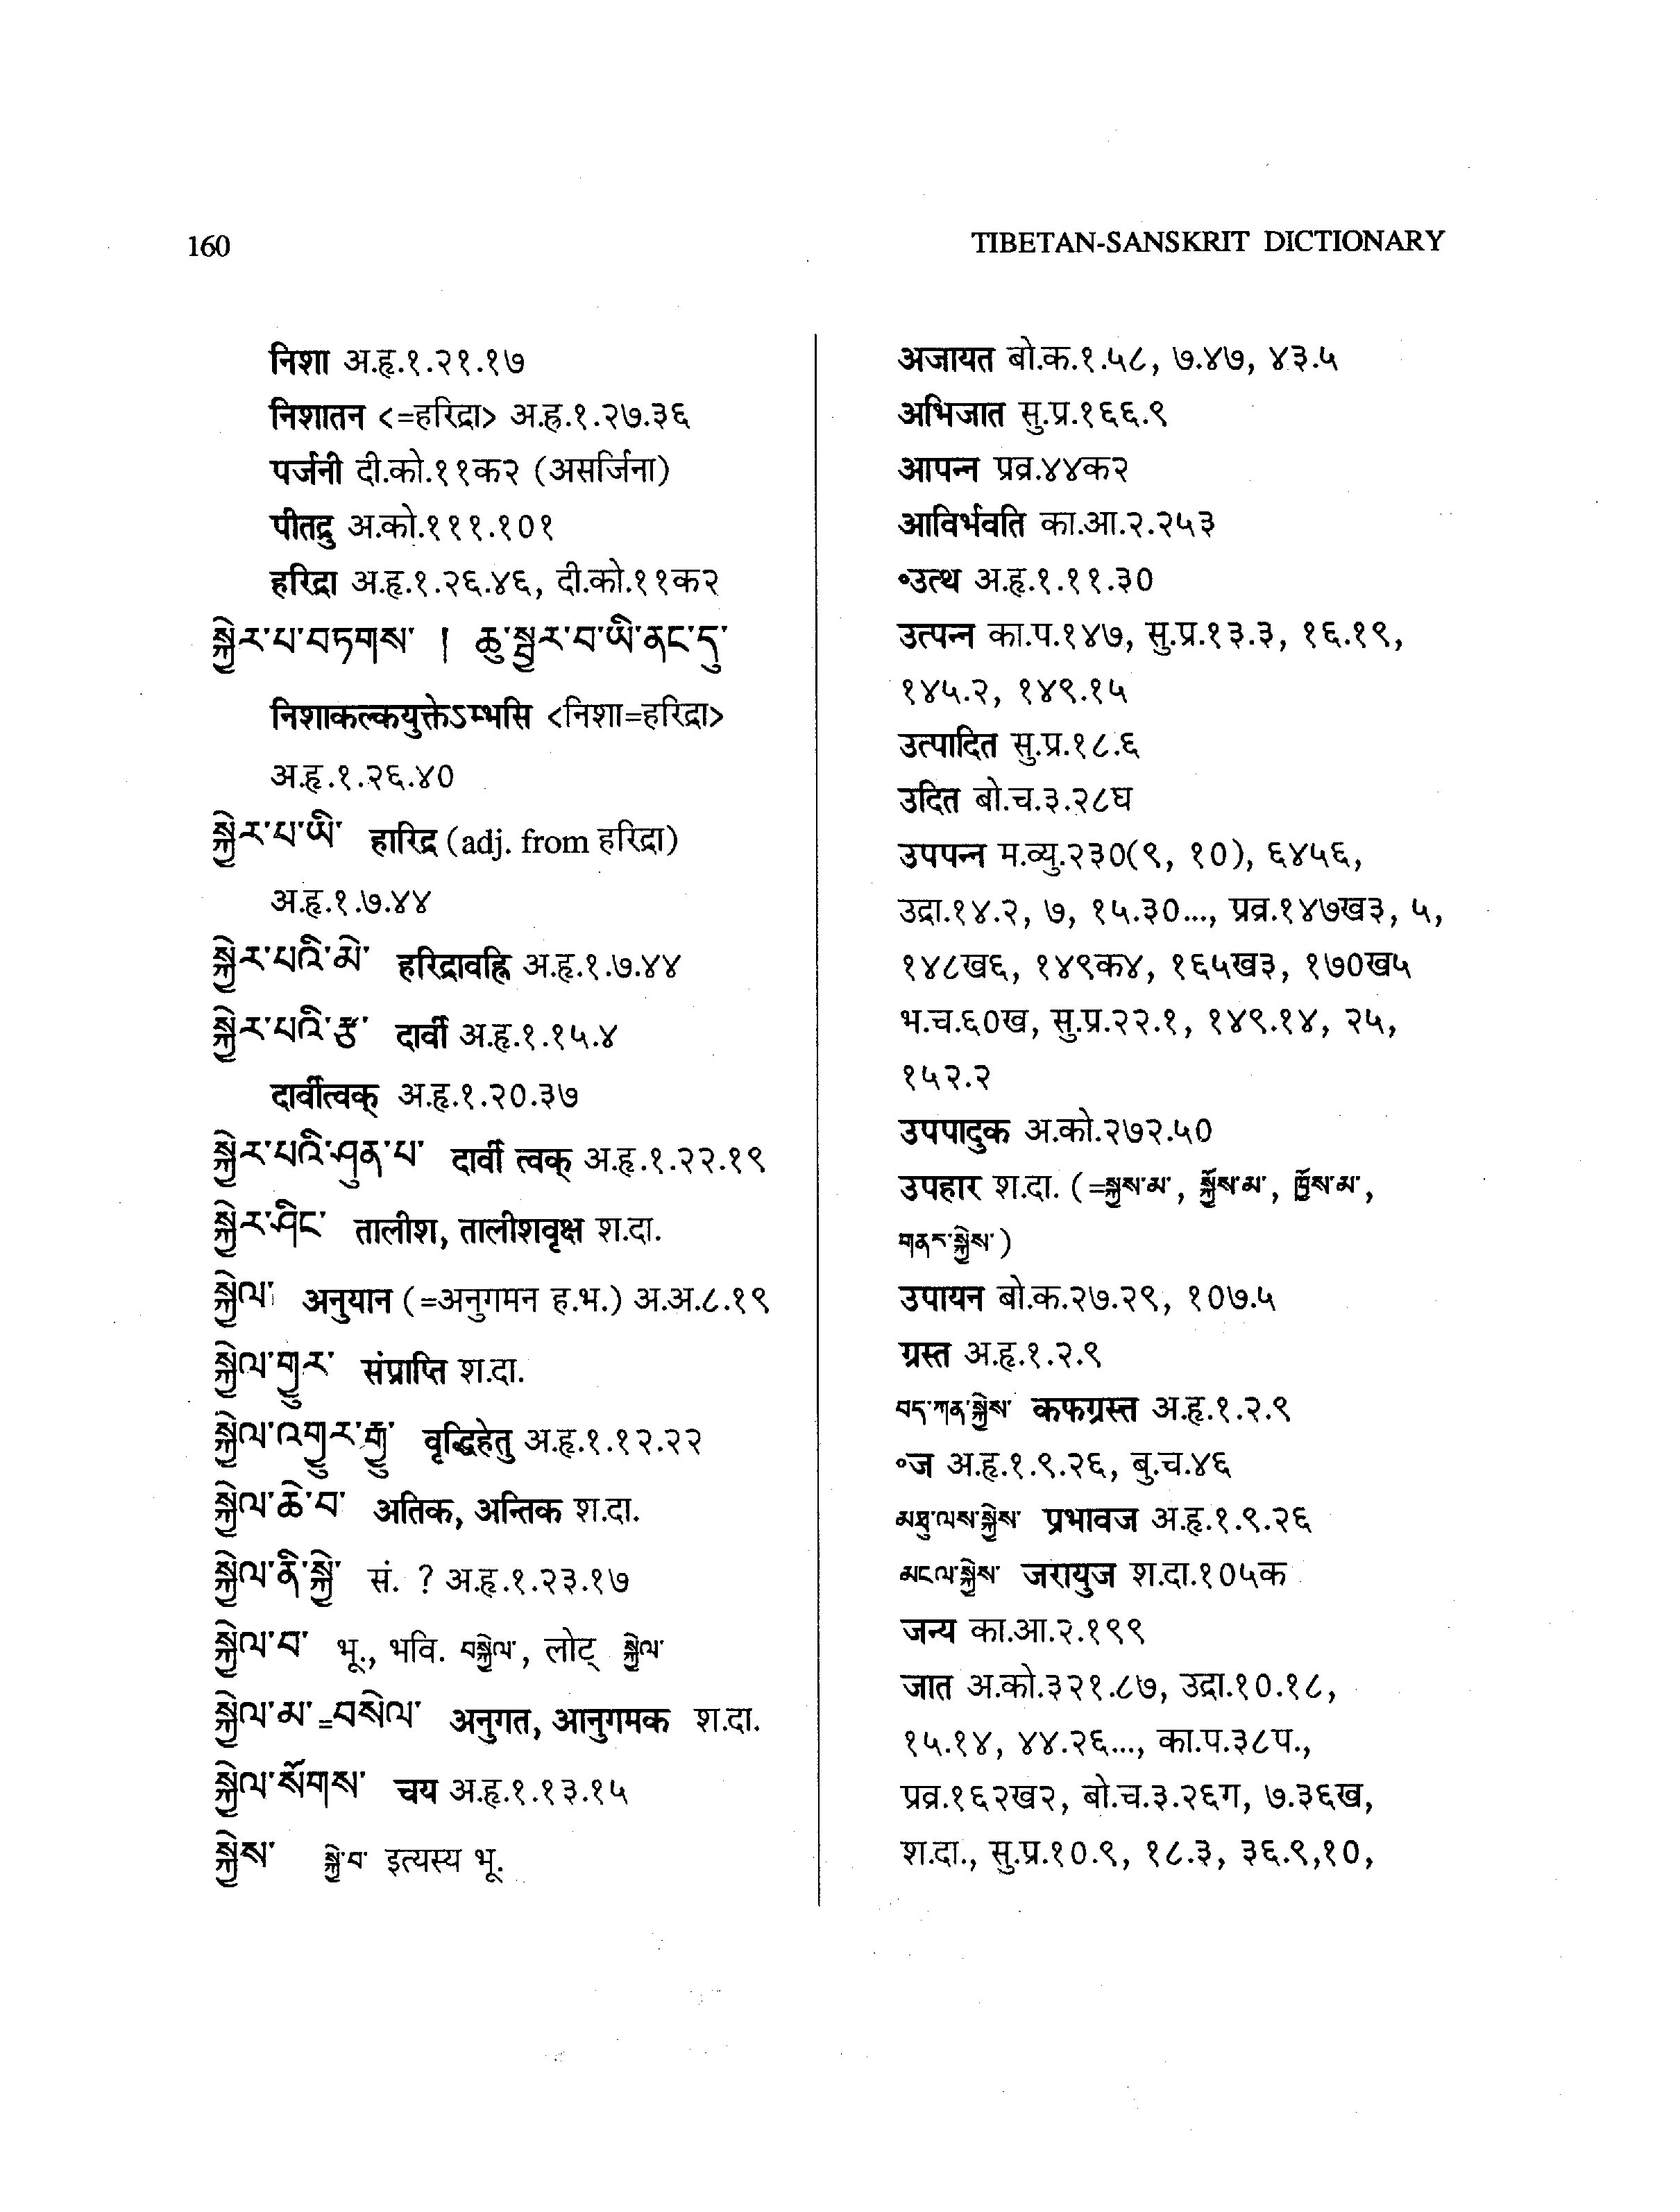 160
TIBETAN-SANSKRIT DICTIONARY
निशा अ.हृ.१.२१.१७
निशातन <=हरिद्रा> अ.ह्र.१.२७.३६
पर्जनी दी.को.११क२ (असर्जिना)
पीतद्रु अ.को.१११.१०१
हरिद्रा अ.हृ.१.२६.४६, दी.को.११क२
སྐྱེར་པ་བཏགས་ | ཆུ་སྦྱར་བ་ཡི་ནང་དུ་
निशाकल्कयुक्तेऽम्भसि <निशा=हरिद्रा>
अ.हृ.१.२६.४०
སྐྱེར་པ་ཡི་ हारिद्र (adj. from हरिद्रा)
अ.हृ.१.७.४४
སྐྱེར་པའི་མེ་ हरिद्रावह्नि अ.हृ.१.७.४४
སྐྱེར་པའི་རྩ་ दार्वी अ.हृ.१.१५.४
दार्वीत्वक् अ.हृ.१.२०.३७
སྐྱེར་པའི་ཤུན་པ་ दार्वी त्वक् अ.हृ.१.२२.१९
སྐྱེར་ཤིང་ तालीश, तालीशवृक्ष श.दा.
སྐྱེལ་ अनुयान (=अनुगमन ह.भ.) अ.अ.८.१९
སྐྱེལ་གྱུར་ संप्राप्ति श.दा.
སྐྱེལ་འགྱུར་རྒྱུ་ वृद्धिहेतु अ.हृ.१.१२.२२
སྐྱེལ་ཆེ་བ་ अतिक, अन्तिक श.दा.
སྐྱེལ་ནི་སྐྱེ་ सं. ? अ.हृ.१.२३.१७
སྐྱེལ་བ་ भू., भवि. བསྐྱེལ་, लोट् སྐྱེལ་
སྐྱེལ་མ་=བསེལ་ अनुगत, आनुगमक श.दा.
སྐྱེལ་སོགས་ चय अ.हृ.१.१३.१५
སྐྱེས་ སྐྱེ་བ་ इत्यस्य भू.
अजायत बो.क.१.५८, ७.४७, ४३.५
अभिजात सु.प्र.१६६.९
आपन्न प्रव्र.४४क२
आविर्भवति का.आ.२.२५३
॰उत्थ अ.हृ.१.११.३०
उत्पन्न का.प.१४७, सु.प्र.१३.३, १६.१९,
१४५.२, १४९.१५
उत्पादित सु.प्र.१८.६
उदित बो.च.३.२८घ
उपपन्न म.व्यु.२३०(९, १०), ६४५६,
उद्रा.१४.२, ७, १५.३०..., प्रव्र.१४७ख३, ५,
१४८ख६, १४९क४, १६५ख३, १७०ख५
भ.च.६०ख, सु.प्र.२२.१, १४९.१४, २५,
१५२.२
उपपादुक अ.को.२७२.५०
उपहार श.दा. (=སྐྱས་མ་, སྐྱོས་མ་, ཁྱོས་མ་,
གནང་སྐྱེས་)
उपायन बो.क.२७.२९, १०७.५
ग्रस्त अ.हृ.१.२.९
བད་ཀན་སྐྱེས་ कफग्रस्त अ.हृ.१.२.९
॰ज अ.हृ.१.९.२६, बु.च.४६
མཐུ་ལས་སྐྱེས་ प्रभावज अ.हृ.१.९.२६
མངལ་སྐྱེས་ जरायुज श.दा.१०५क
जन्य का.आ.२.१९९
जात अ.को.३२१.८७, उद्रा.१०.१८,
१५.१४, ४४.२६..., का.प.३८प.,
प्रव्र.१६२ख२, बो.च.३.२६ग, ७.३६ख,
श.दा., सु.प्र.१०.९, १८.३, ३६.९,१०,